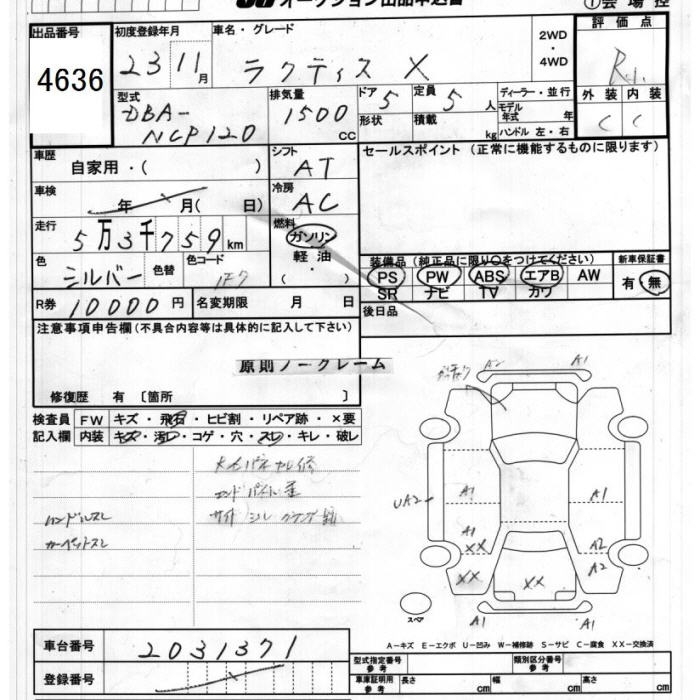 オークション出品申込書
①会場控
出品番号
4636
初度登録年月
23 11月
車名・グレード
ラクティス X
2WD
・
4WD
評価点
R1
外装 内装
C C
型式
DBA-
NCP120
排気量
1500
cc
ドア 5
定員 5 人
形状
積載 kg
ディーラー・並行
モデル
年式 年
ハンドル 左・右
車歴
自家用・( )
シフト
AT
セールスポイント (正常に機能するものに限ります)
車検
年 月( 日)
冷房
AC
走行
5万3千759km
燃料
ガソリン
軽油・
( )
色
シルバー
色替
色コード
1F7
装備品 (純正品に限り○をつけてください)
PS PW ABS エアB AW
SR ナビ TV カワ
新車保証書
有・無
R券 10000円
名変期限 月 日
後日品
注意事項申告欄(不具合内容等は具体的に記入して下さい)
原則ノークレーム
修復歴 有 [箇所 ]
検査員
記入欄
FW キズ・飛石・ヒビ割・リペア跡・×要
内装 キズ・汚れ・コゲ・穴・スレ・キレ・破レ
ハンドルスレ
カーペットスレ
A2 A1
UA2
A1
A1
A1
XX
XX
A2
A2
XX
スペア
A1
A1
A-キズ E-エクボ U-凹み W-補修跡 S-サビ C-腐食 XX-交換済
車台番号
2031371
登録番号
型式指定番号
参考
類別区分番号
参考
車庫証明用
参考
長さ cm
幅 cm
高さ cm